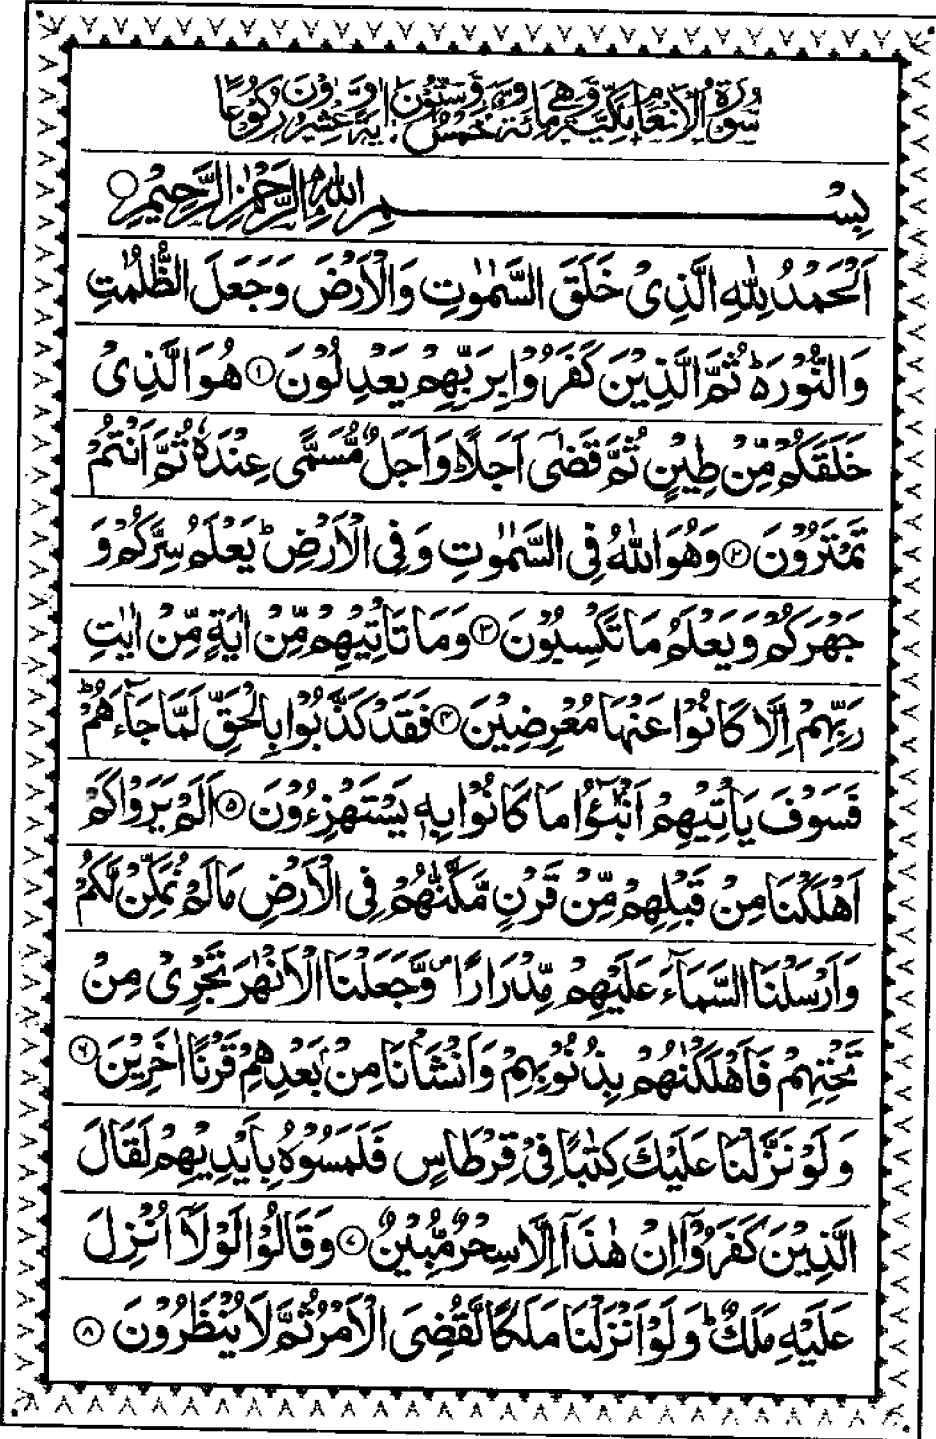 سُوْرَةُ الْاَنْعَامِ مَكِّيَّةٌ وَّهِيَ مِائَةٌ وَّخَمْسٌ وَّسِتُّوْنَ اٰيَةً وَّعِشْرُوْنَ رُكُوْعًا
بِسْمِ اللّٰهِ الرَّحْمٰنِ الرَّحِيْمِ
اَلْحَمْدُ لِلّٰهِ الَّذِىْ خَلَقَ السَّمٰوٰتِ وَالْاَرْضَ وَجَعَلَ الظُّلُمٰتِ
وَالنُّوْرَ ؕ ثُمَّ الَّذِيْنَ كَفَرُوْا بِرَبِّهِمْ يَعْدِلُوْنَ ۝۱ هُوَ الَّذِىْ
خَلَقَكُمْ مِّنْ طِيْنٍ ثُمَّ قَضٰٓى اَجَلًا ؕ وَاَجَلٌ مُّسَمًّى عِنْدَهٗ ثُمَّ اَنْتُمْ
تَمْتَرُوْنَ ۝۲ وَهُوَ اللّٰهُ فِى السَّمٰوٰتِ وَفِى الْاَرْضِ ؕ يَعْلَمُ سِرَّكُمْ وَ
جَهْرَكُمْ وَيَعْلَمُ مَا تَكْسِبُوْنَ ۝۳ وَمَا تَاْتِيْهِمْ مِّنْ اٰيَةٍ مِّنْ اٰيٰتِ
رَبِّهِمْ اِلَّا كَانُوْا عَنْهَا مُعْرِضِيْنَ ۝۴ فَقَدْ كَذَّبُوْا بِالْحَقِّ لَمَّا جَآءَهُمْ ؕ
فَسَوْفَ يَاْتِيْهِمْ اَنْۢبٰٓؤُا مَا كَانُوْا بِهٖ يَسْتَهْزِءُوْنَ ۝۵ اَلَمْ يَرَوْا كَمْ
اَهْلَكْنَا مِنْ قَبْلِهِمْ مِّنْ قَرْنٍ مَّكَّنّٰهُمْ فِى الْاَرْضِ مَا لَمْ نُمَكِّنْ لَّكُمْ
وَاَرْسَلْنَا السَّمَآءَ عَلَيْهِمْ مِّدْرَارًا ۪ وَّجَعَلْنَا الْاَنْهٰرَ تَجْرِىْ مِنْ
تَحْتِهِمْ فَاَهْلَكْنٰهُمْ بِذُنُوْبِهِمْ وَاَنْشَاْنَا مِنْۢ بَعْدِهِمْ قَرْنًا اٰخَرِيْنَ ۝۶
وَلَوْ نَزَّلْنَا عَلَيْكَ كِتٰبًا فِىْ قِرْطَاسٍ فَلَمَسُوْهُ بِاَيْدِيْهِمْ لَقَالَ
الَّذِيْنَ كَفَرُوْٓا اِنْ هٰذَآ اِلَّا سِحْرٌ مُّبِيْنٌ ۝۷ وَقَالُوْا لَوْلَاۤ اُنْزِلَ
عَلَيْهِ مَلَكٌ ؕ وَلَوْ اَنْزَلْنَا مَلَكًا لَّقُضِىَ الْاَمْرُ ثُمَّ لَا يُنْظَرُوْنَ ۝۸